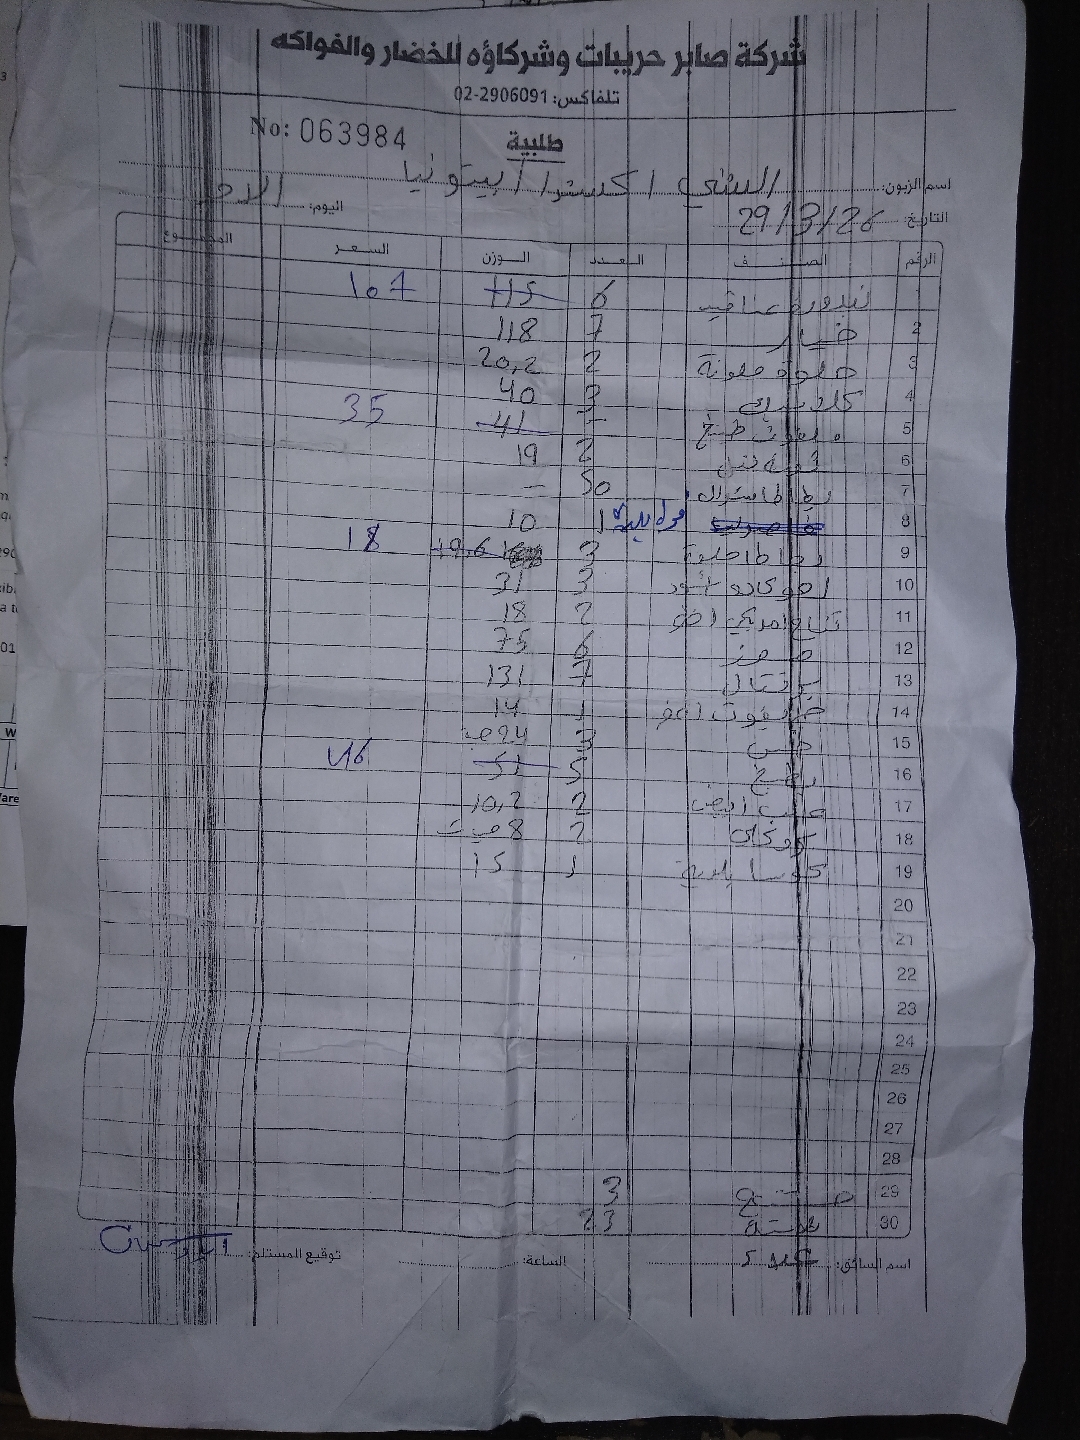 شركة صابر حريبات وشركاؤه للخضار والفواكه
تلفاكس: 02-2906091
No: 063984
طلبية
اسم الزبون: السني اكسترا / بيتونيا
اليوم: الاحد
التاريخ: 29/3/26
الرقم الصنف العدد الوزن السعر المجموع
1 بندورة عناقيد 6 115 107
2 خيار 7 118
3 حلوة ملونة 2 20,2
4 كلاسيك 3 40
5 ملفوف طبخ 41 35
6 2 19
7 بطاطا 50 -
8 بلدية 1 10
9 بطاطا حلوة 3 19,6 18
10 افوكادو اسود 3 31
11 تفاح امريكي اخضر 2 18
12 موز 6 75
13 برتقال 7 131
14 جريفوت احمر 1 14
15 خس 3 24 حبة
16 بطيخ 5 51 46
17 عنب ابيض 2 10,2
18 2 8
19 كوسا بلدية 1 15
20
21
22
23
24
25
26
27
28
29 3
30 23
اسم السائق:
الساعة:
توقيع المستلم: